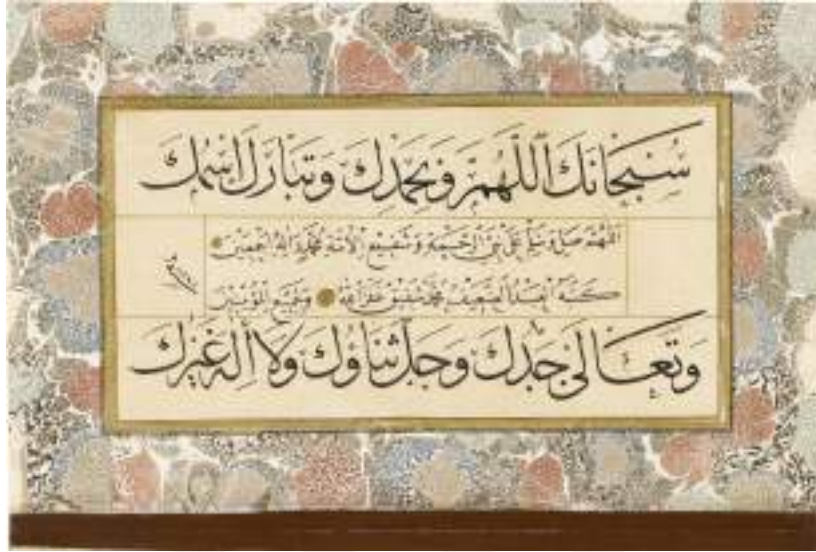 سُبْحَانَكَ اللّٰهُمَّ وَبِحَمْدِكَ وَتَبَارَكَ اسْمُكَ
اللهم صل وسلم على نبي الرحمة وشفيع الأمة محمد وآله أجمعين
كتبه العبد الضعيف محمد شفيق غفر الله له
وَتَعَالَى جَدُّكَ وَجَلَّ ثَنَاؤُكَ وَلَا إِلٰهَ غَيْرُكَ